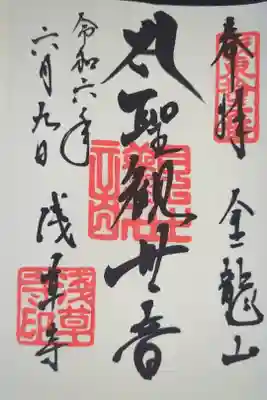 奉拝 金龍山
大聖観世音
令和六年
六月九日
浅草寺
浅草寺印